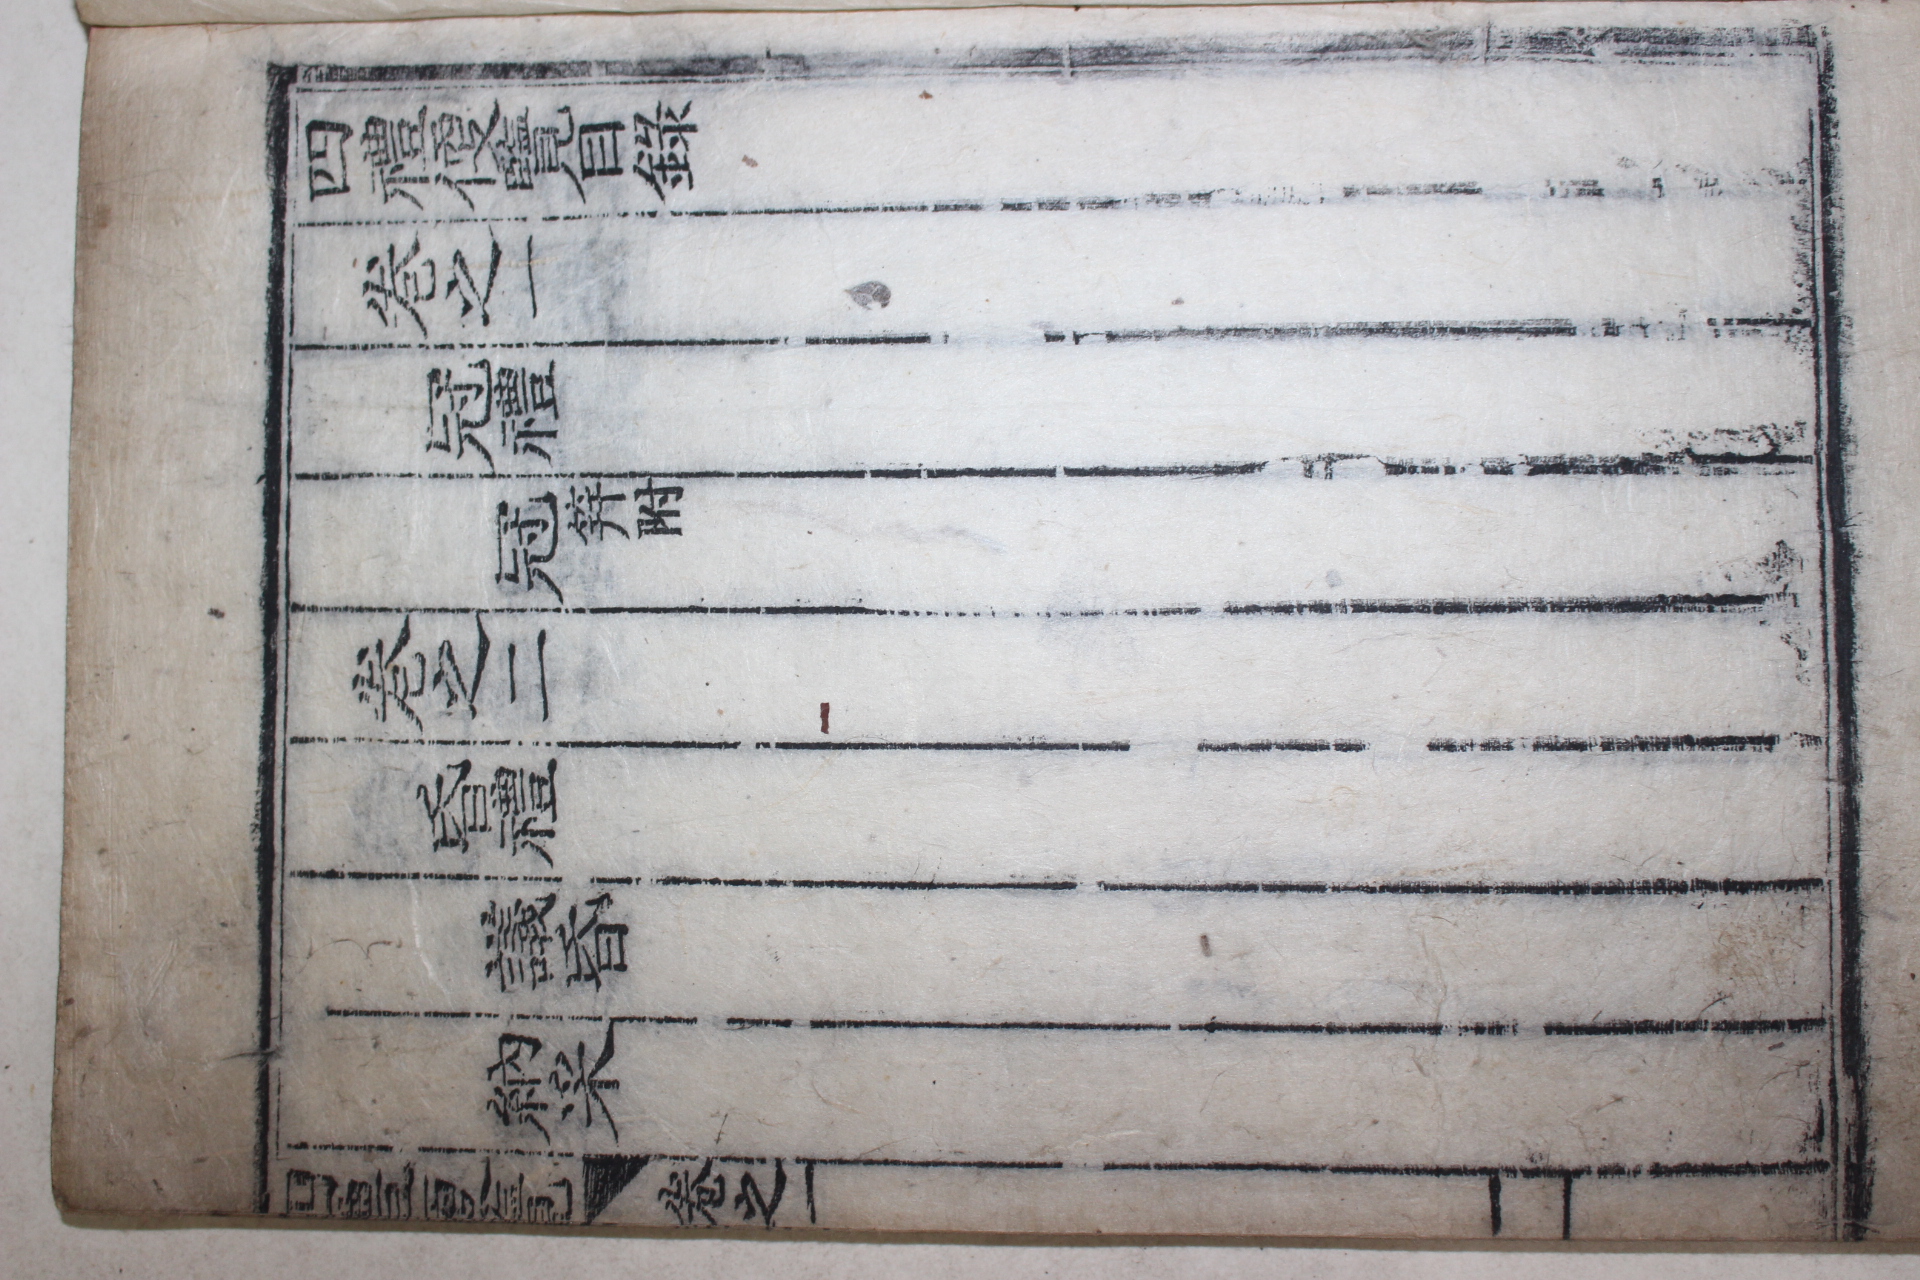 四禮便覽目錄
卷之一
冠禮
冠笄附
卷之二
昏禮
議昏
納采
四禮便覽 卷之一